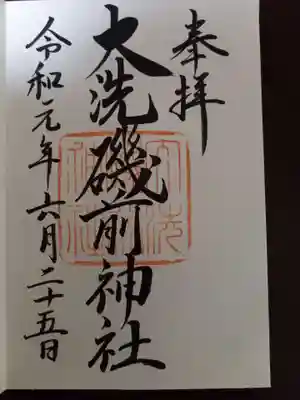 奉拝
大洗磯前神社
令和元年六月二十五日